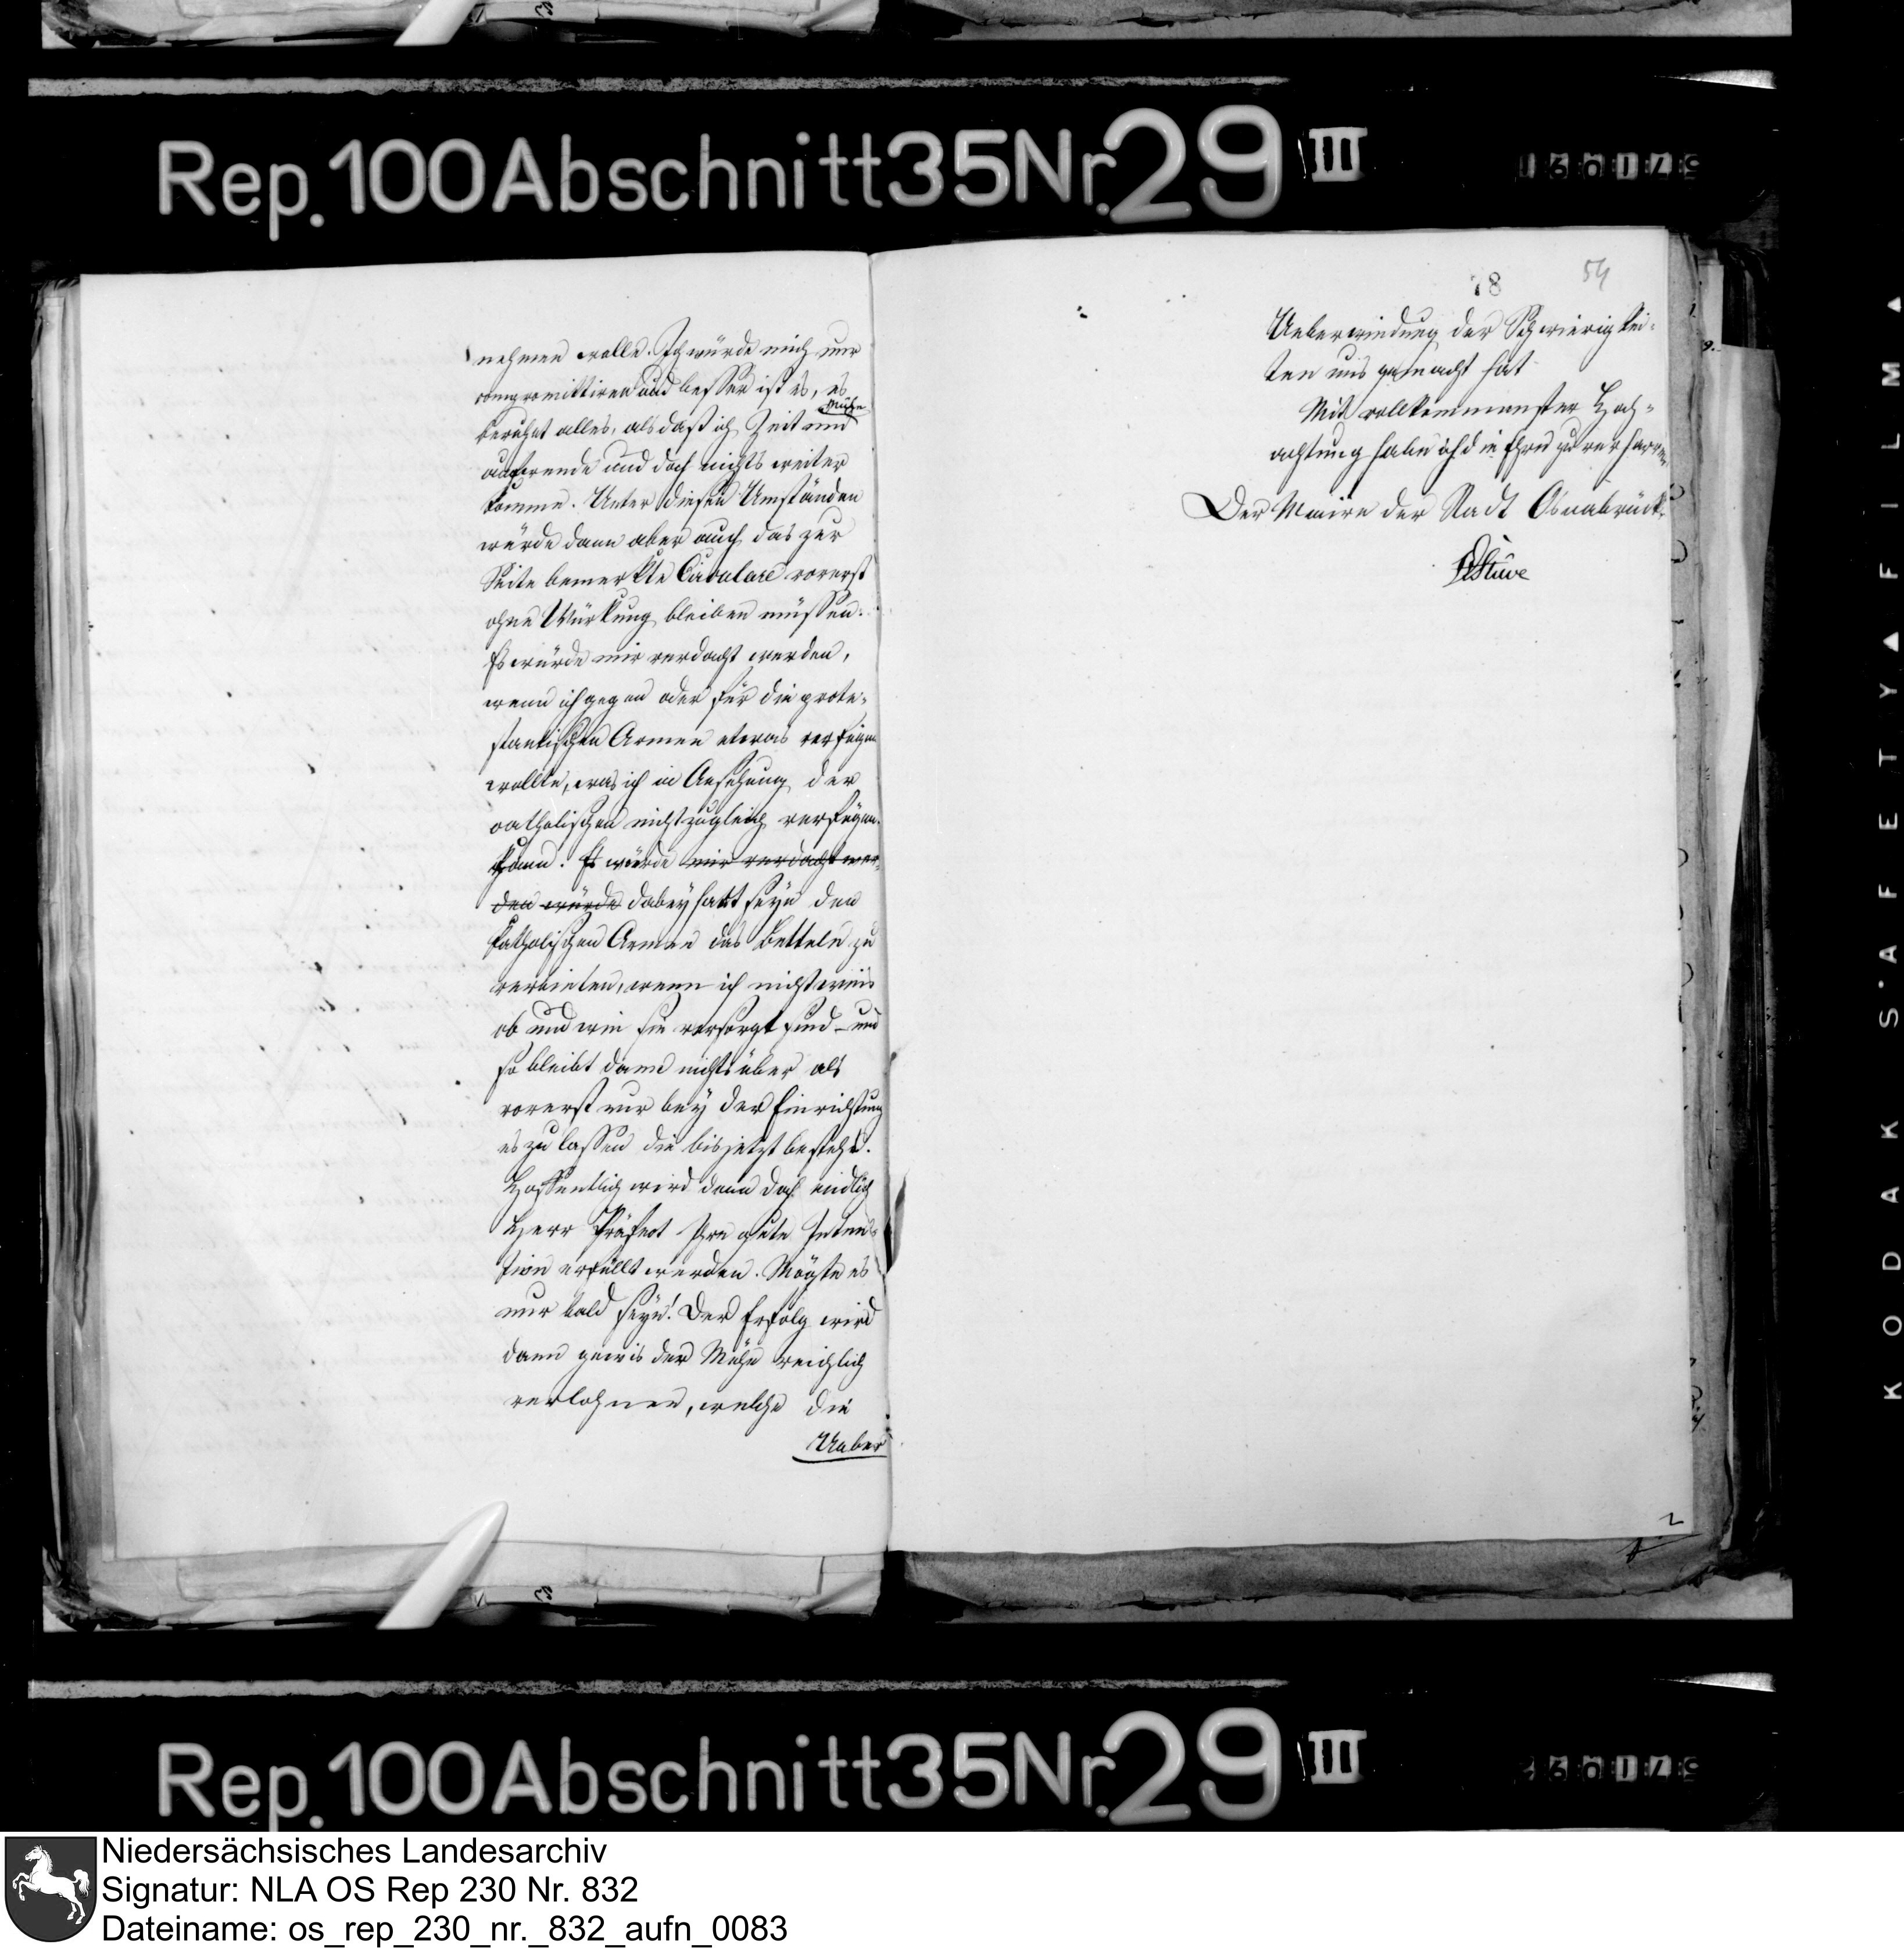 Rep. 100 Abschnitt 35 Nr. 29 III
78 54
nehmen wolle. Ich würde mich nur
compromittiren und besser ist es, es
beruhet alles, als daß ich Zeit und
Mühe
aufwende und doch nichts weiter
komme. Unter diesen Umständen
würde dann aber auch das zur
Seite bemerkte Circulare vorerst
ohne Würkung bleiben müssen.
Es würde mir verdacht werden,
wenn ich gegen oder für die prote-
stantischen Armen etwas verfügen
wollte, was ich in Ansehung der
catholischen nicht zugleich verfügen
kann. Es würde mir verdacht wer-
den würde dabey hart seyn den
katholischen Armen das Betteln zu
verbieten, wenn ich nicht weis
ob und wie sie versorgt sind – und
so bleibt dann nichts über als
vorerst nur bey der Einrichtung
es zu lassen die bis jetzt besteht.
Hoffentlich wird dann doch endlich
Herr Präfect Ihre gute Inten-
tion erfüllt werden. Mögte es
nur bald seyn! Der Erfolg wird
dann gewis der Mühe reichlich
verlohnen, welche die
Ueber
Ueberwindung der Schwierigkei-
ten uns gemacht hat.
Mit vollkommenster Hoch-
achtung habe ich die Ehre zu verharren
Der Maire der Stadt Osnabrück.
Stüve
2
KODAK SAFETY FILM
Rep. 100 Abschnitt 35 Nr. 29 III
Niedersächsisches Landesarchiv
Signatur: NLA OS Rep 230 Nr. 832
Dateiname: os_rep_230_nr._832_aufn_0083